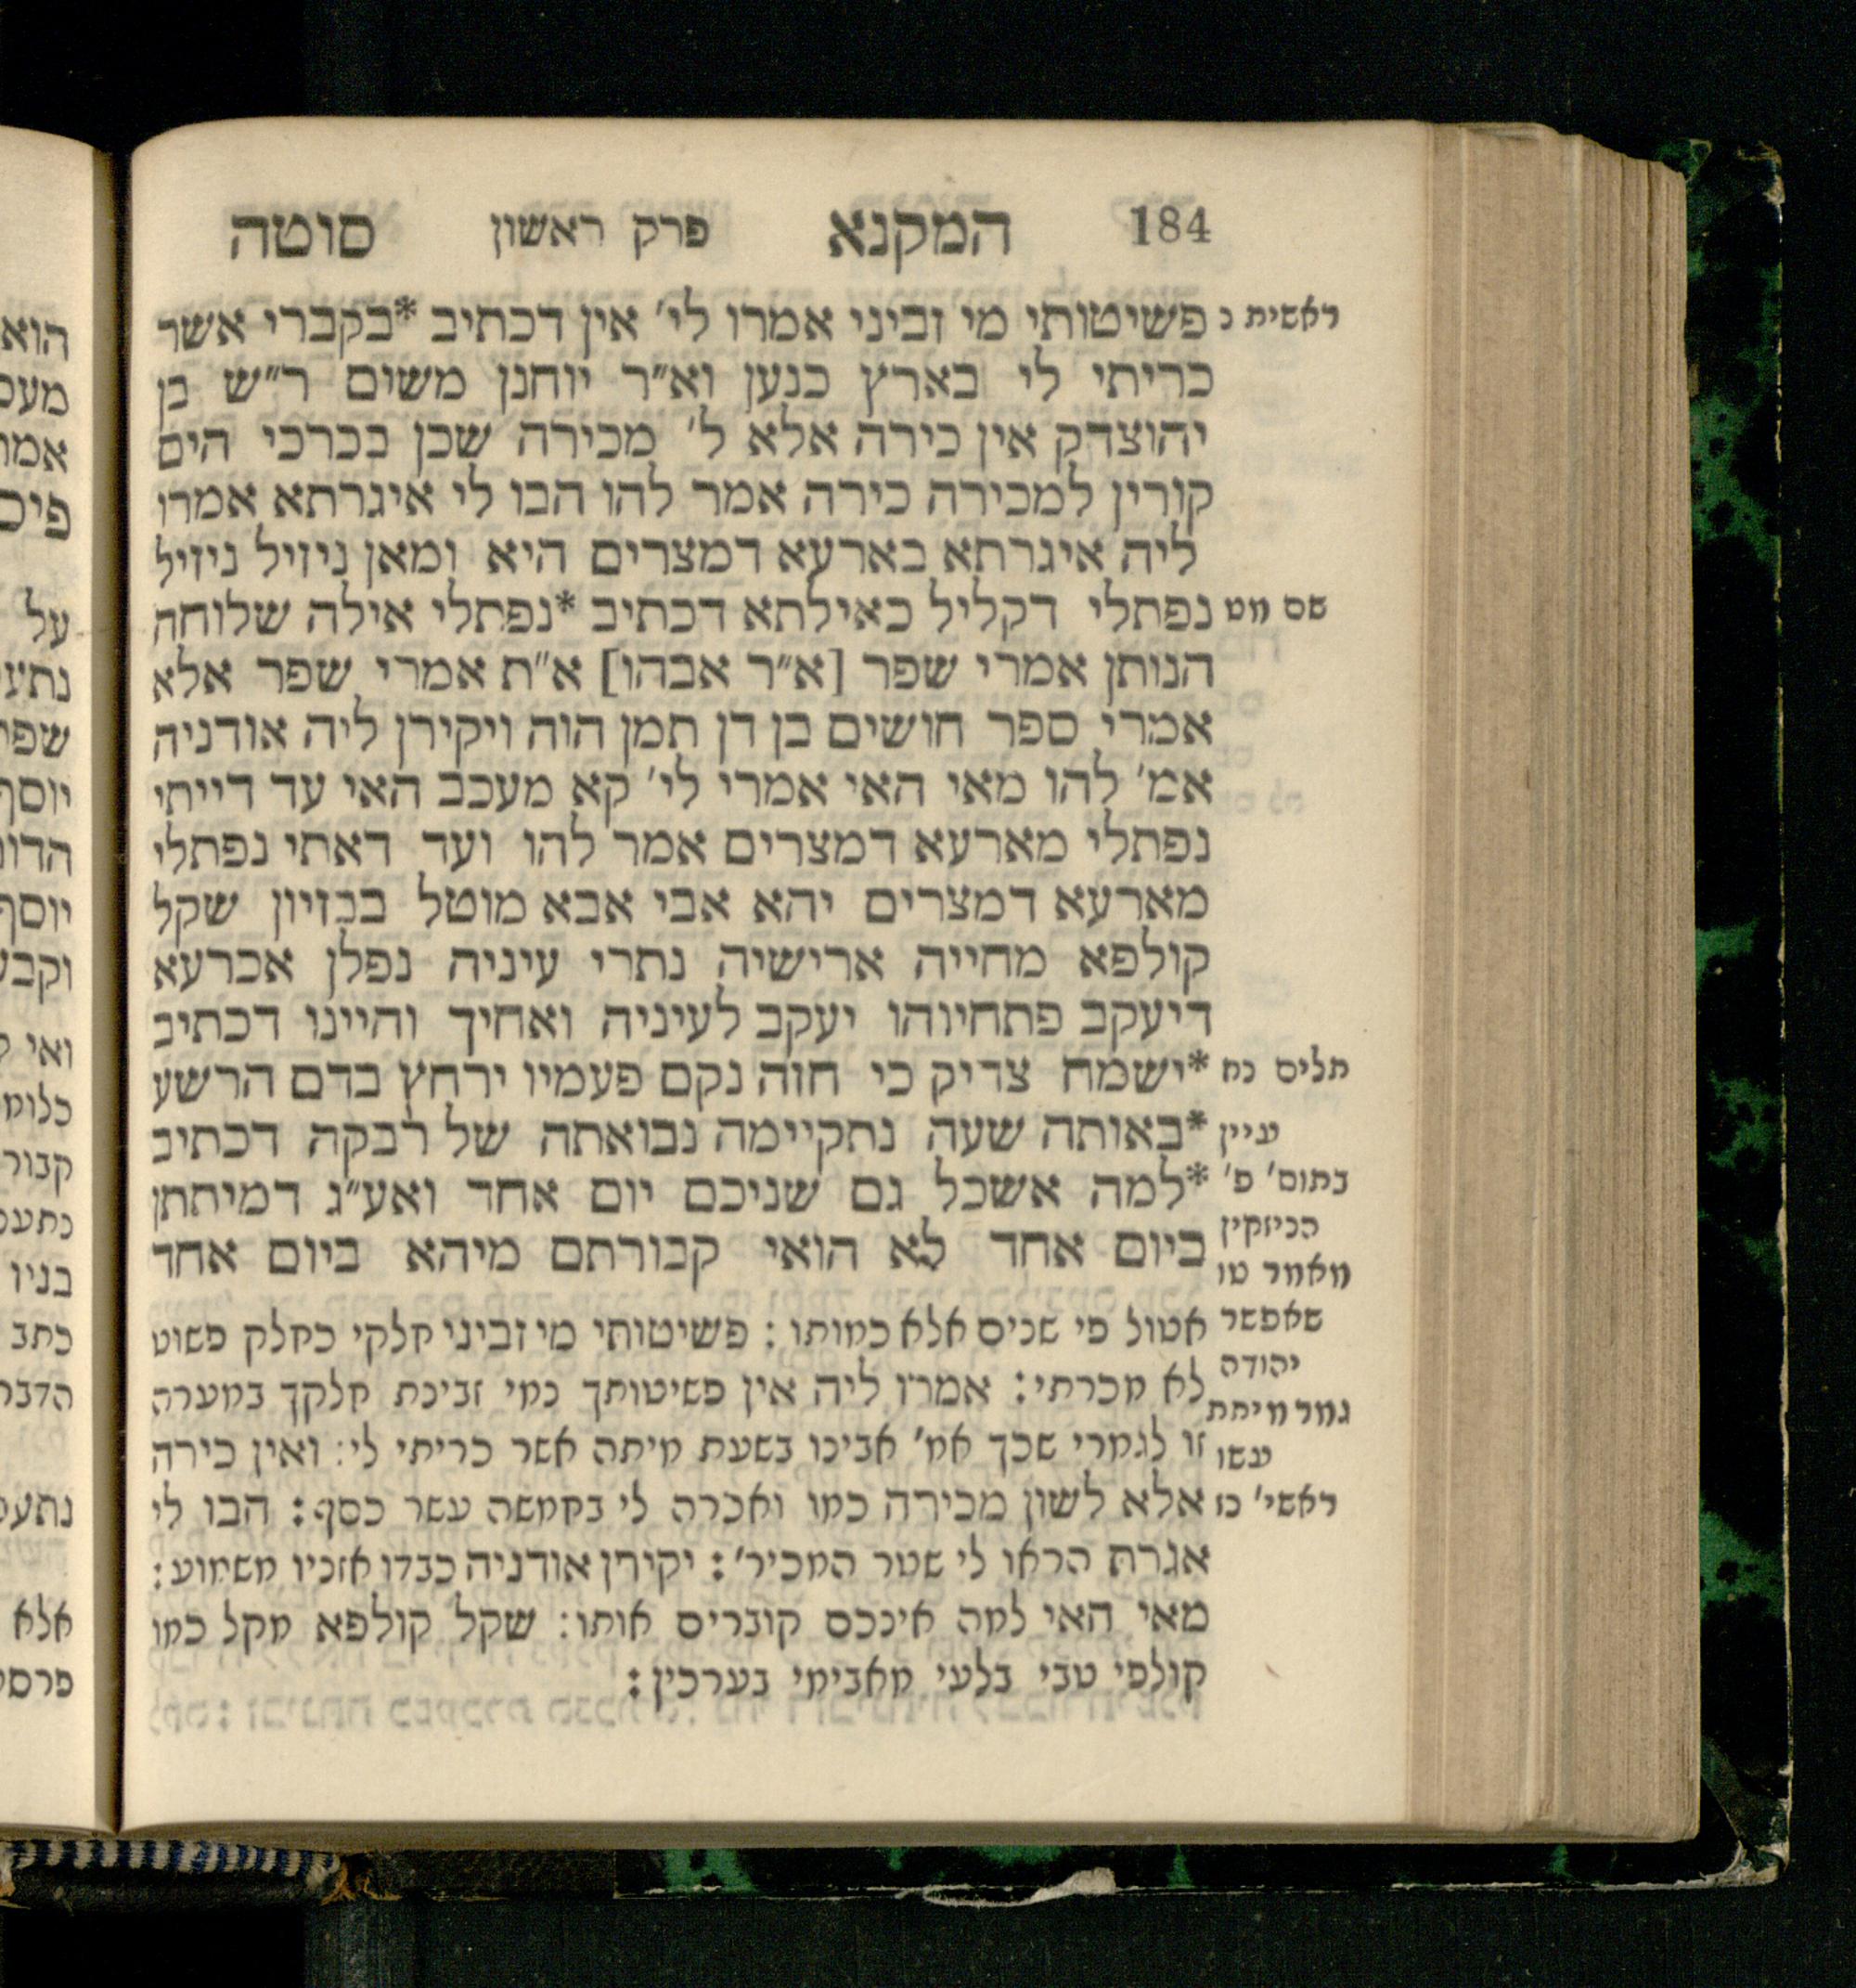 184 המקנא פרק ראשון סוטה
ראשית נ
פשיטותי מי זביני אמרו לי׳ אין דכתיב *בקברי אשר
כריתי לי בארץ כנען וא״ר יוחנן משום ר״ש בן
יהוצדק אין כירה אלא ל׳ מכירה שכן בכרכי הים
קורין למכירה כירה אמר להו הבו לי איגרתא אמרו
ליה איגרתא בארעא דמצרים היא ומאן ניזיל ניזיל
שם מט
נפתלי דקליל כאילתא דכתיב *נפתלי אילה שלוחה
הנותן אמרי שפר [א״ר אבהו] א״ת אמרי שפר אלא
אמרי ספר חושים בן דן תמן הוה ויקירן ליה אודניה
אמ׳ להו מאי האי אמרי לי׳ קא מעכב האי עד דייתי
נפתלי מארעא דמצרים אמר להו ועד דאתי נפתלי
מארעא דמצרים יהא אבי אבא מוטל בבזיון שקל
קולפא מחייה ארישיה נתרי עיניה נפלן אכרעא
דיעקב פתחיוהו יעקב לעיניה ואחיך והיינו דכתיב
תלים נח
*ישמח צדיק כי חזה נקם פעמיו ירחץ בדם הרשע
*באותה שעה נתקיימה נבואתה של רבקה דכתיב
*למה אשכל גם שניכם יום אחד ואע״ג דמיתתן
ביום אחד לא הואי קבורתם מיהא ביום אחד
עיין
בתוס׳ פ׳
הניזקין
מאמר טו
שאפשר
יהודה
גמר מיתת
עשו
אטול פי שנים אלא כמותו: פשיטותי מי זביני חלקי כחלק פשוט
לא מכרתי: אמרו ליה אין פשיטותך נמי זבינת חלקך במערה
זו לגמרי שכך אמ׳ אבינו בשעת מיתה אשר כריתי לי: ואין כירה
ראשי׳ נז
אלא לשון מכירה כמו ואכרה לי בחמשה עשר כסף: הבו לי
אגרת הראו לי שטר המכיר׳: יקירן אודניה כבדו אזניו משמוע:
מאי האי למה אינכם קוברים אותו: שקל קולפא מקל כמו
קולפי טבי בלעי מאבימי בערכין: